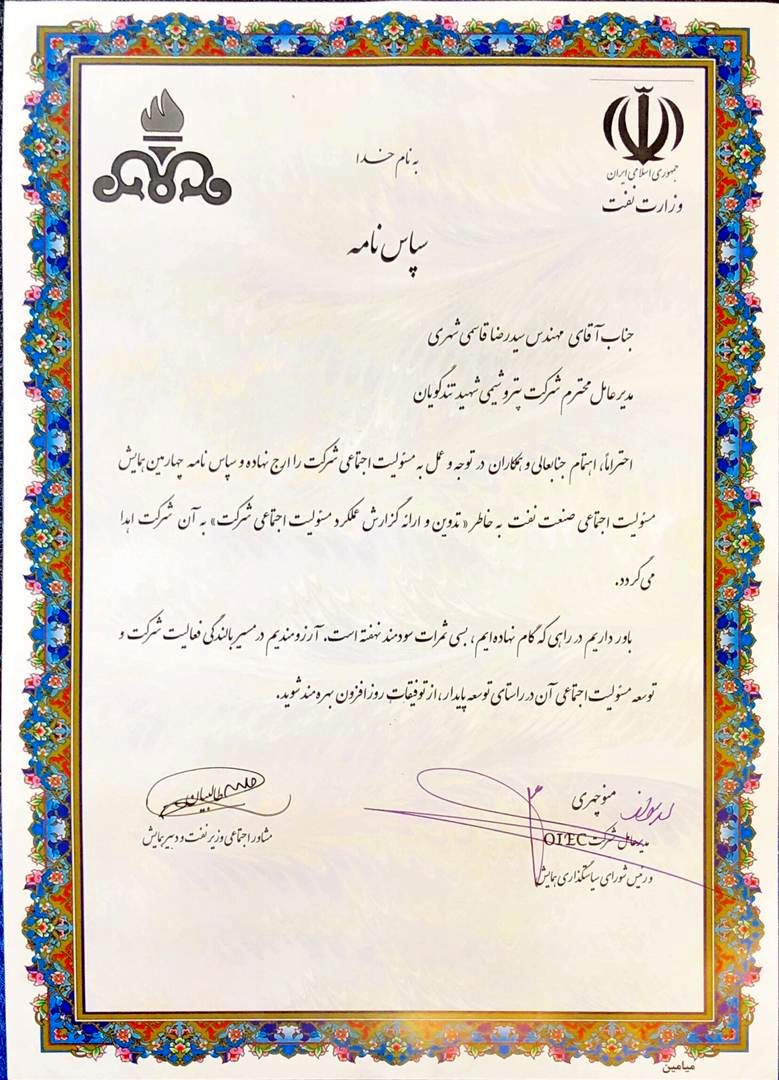 به نام خدا
جمهوری اسلامی ایران
وزارت نفت
سپاس نامه
جناب آقای مهندس سیدرضا قاسمی شهری
مدیرعامل محترم شرکت پتروشیمی شهید تندگویان
احتراماً، اهتمام جنابعالی و همکاران در توجه و عمل به مسئولیت اجتماعی شرکت را ارج نهاده و سپاس نامه چهارمین همایش
مسئولیت اجتماعی صنعت نفت به خاطر «تدوین و ارائه گزارش عملکرد مسئولیت اجتماعی شرکت» به آن شرکت اهدا
می گردد.
باور داریم در راهی که گام نهاده ایم، بسی ثمرات سودمند نهفته است. آرزومندیم در مسیر بالندگی فعالیت شرکت و
توسعه مسئولیت اجتماعی آن در راستای توسعه پایدار، از توفیقات روزافزون بهره مند شوید.
منوچهری
مدیرعامل شرکت OIEC
و رئیس شورای سیاستگذاری همایش
طالبیان
مشاور اجتماعی وزیر نفت و دبیر همایش
میامین